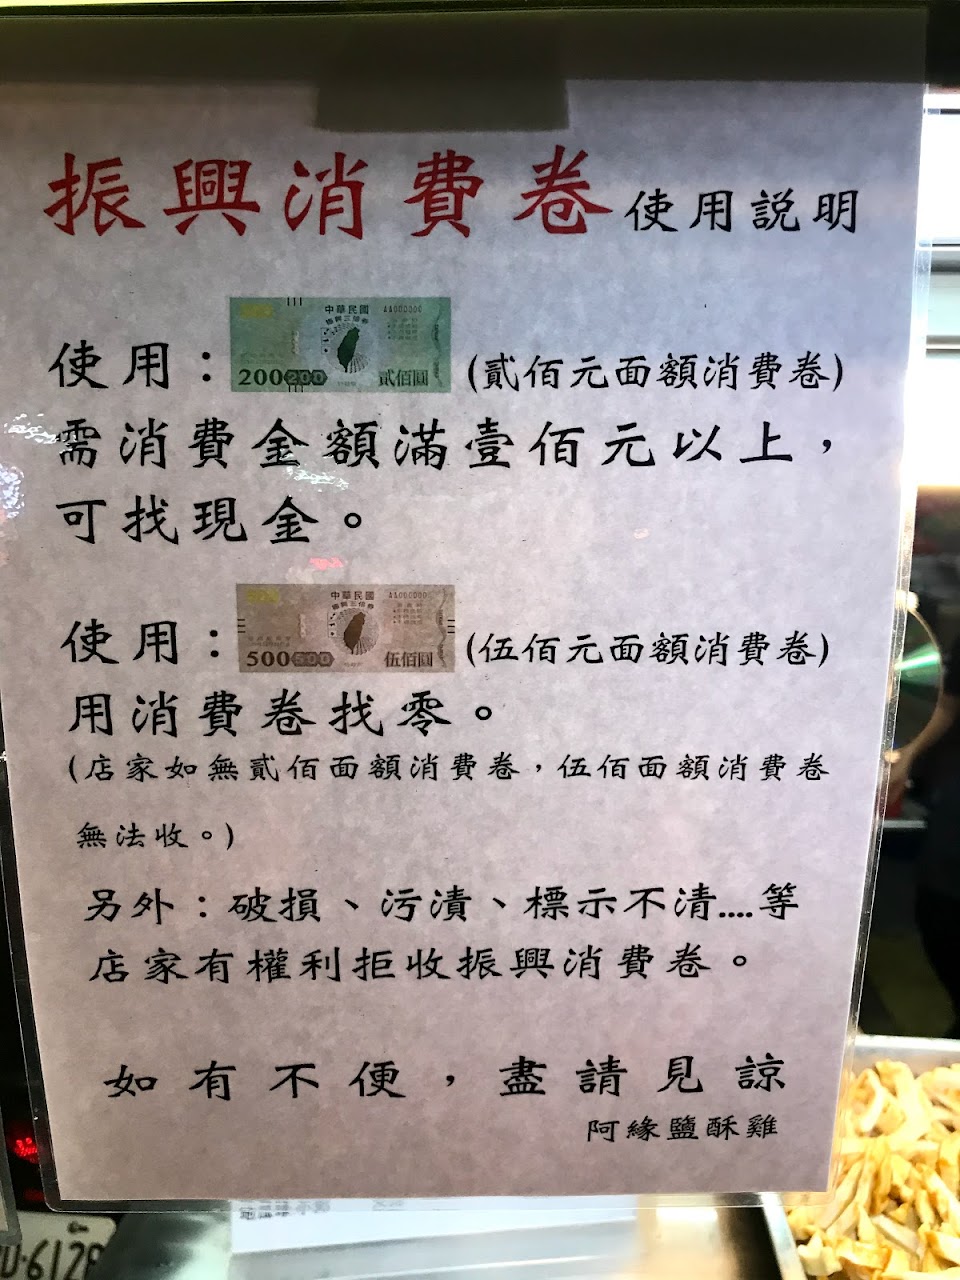 振興消費卷使用說明
中華民國 AA000000
振興三倍券
200 200 貳佰圓
使用： (貳佰元面額消費卷)
需消費金額滿壹佰元以上，
可找現金。
中華民國 AA000000
振興三倍券
500 500 伍佰圓
使用： (伍佰元面額消費卷)
用消費卷找零。
(店家如無貳佰面額消費卷，伍佰面額消費卷
無法收。)
另外：破損、污漬、標示不清....等
店家有權利拒收振興消費卷。
如有不便，盡請見諒
阿緣鹽酥雞